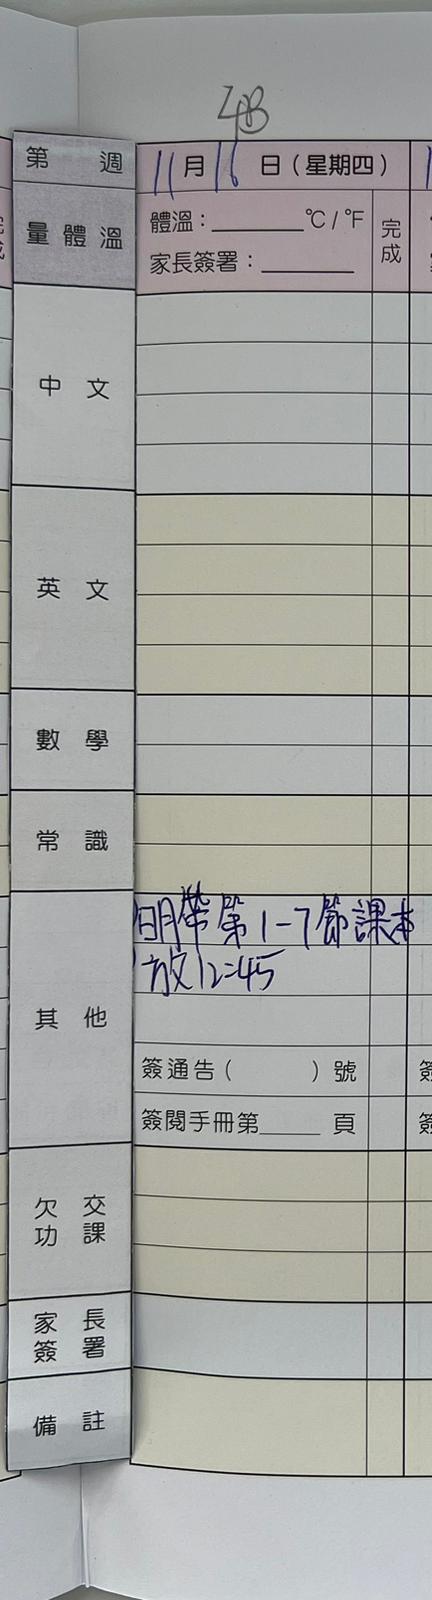 4B
第 週
11月16日(星期四)
量體溫
體溫：______℃/℉
完成
家長簽署：______
中文
英文
數學
常識
明帶第1-7節課本
放12:45
其他
簽通告( )號
簽閱手冊第____頁
欠交功課
家長簽署
備註